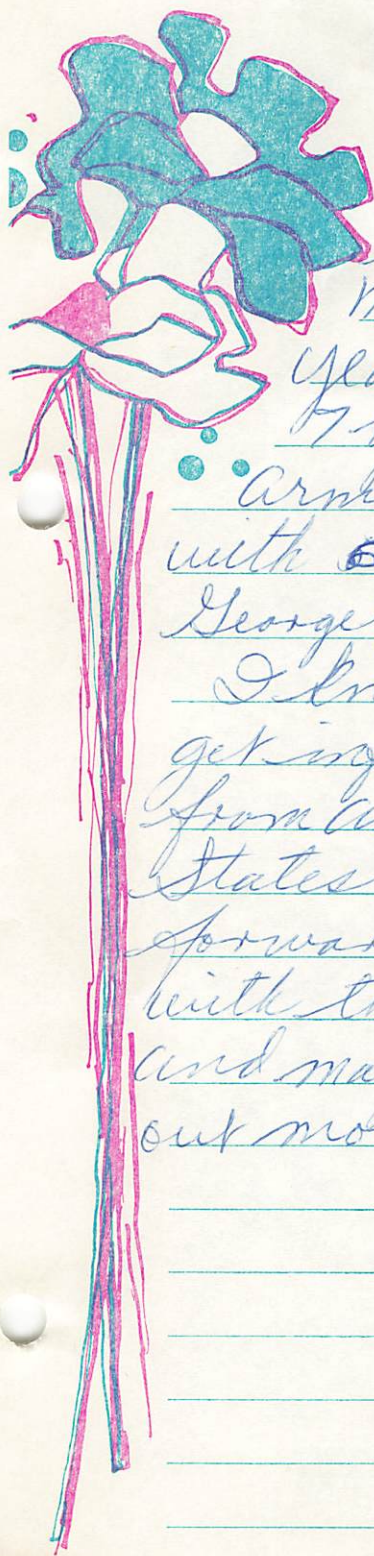 yea
with
George
I kn
get inf
from a
States
forwar
with th
and ma
out mo